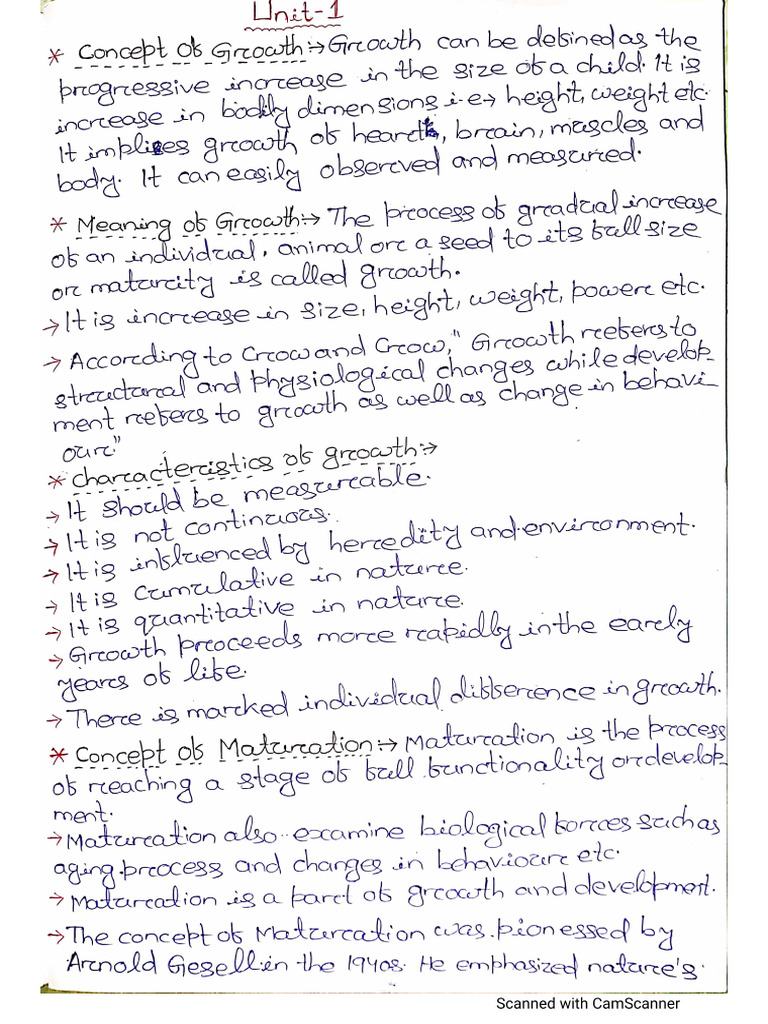 Unit-1
* Concept of Growth:→ Growth can be defined as the
progressive increase in the size of a child. It is
increase in bodily dimensions i.e→ height, weight etc.
It implies growth of heart, brain, muscles and
body. It can easily observed and measured.
* Meaning of Growth:→ The process of gradual increase
of an individual, animal or a seed to its full size
or maturity is called growth.
→ It is increase in size, height, weight, power etc.
→ According to Crow and Crow, "Growth refers to
structural and physiological changes while develop-
ment refers to growth as well as change in behavi-
our."
* Characteristics of growth:→
→ It should be measureable.
→ It is not continuous.
→ It is influenced by heredity and environment.
→ It is cumulative in nature.
→ It is quantitative in nature.
→ Growth proceeds more rapidly in the early
years of life.
→ There is marked individual difference in growth.
* Concept of Maturation:→ Maturation is the process
of reaching a stage of full functionality or develop-
ment.
→ Maturation also examine biological forces such as
aging process and changes in behaviour etc.
→ Maturation is a part of growth and development.
→ The concept of Maturation was pionessed by
Arnold Gesell in the 1940s. He emphasized nature's
Scanned with CamScanner